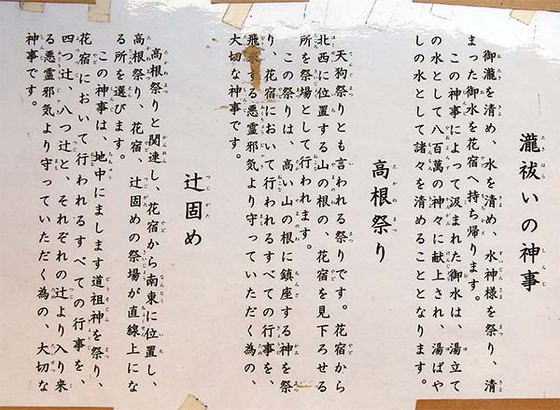 瀧祓いの神事
御瀧を清め、水を清め、水神様を祭り、清
まった御水を花宿へ持ち帰ります。
この神事によって汲まれた御水は、湯立て
の水として八百萬の神々に献上され、湯ばや
しの水として諸々を清めることとなります。
高根祭り
天狗祭りとも言われる祭りです。花宿から
北西に位置する山の根の、花宿を見下ろせる
所を祭場として行われます。
この祭りは、高い山の根に鎮座する神を祭
り、花宿において行われるすべての行事を、
飛来する悪霊邪気より守っていただく為の、
大切な神事です。
辻固め
高根祭りと関連し、花宿から南東に位置し、
高根祭り、花宿、辻固めの祭場が直線上にな
る所を選びます。
この神事は、地中にまします道祖神を祭り、
花宿において行われるすべての行事を
四つ辻、八つ辻と、それぞれの辻より入り来
る悪霊邪気より守っていただく為の、大切な
神事です。